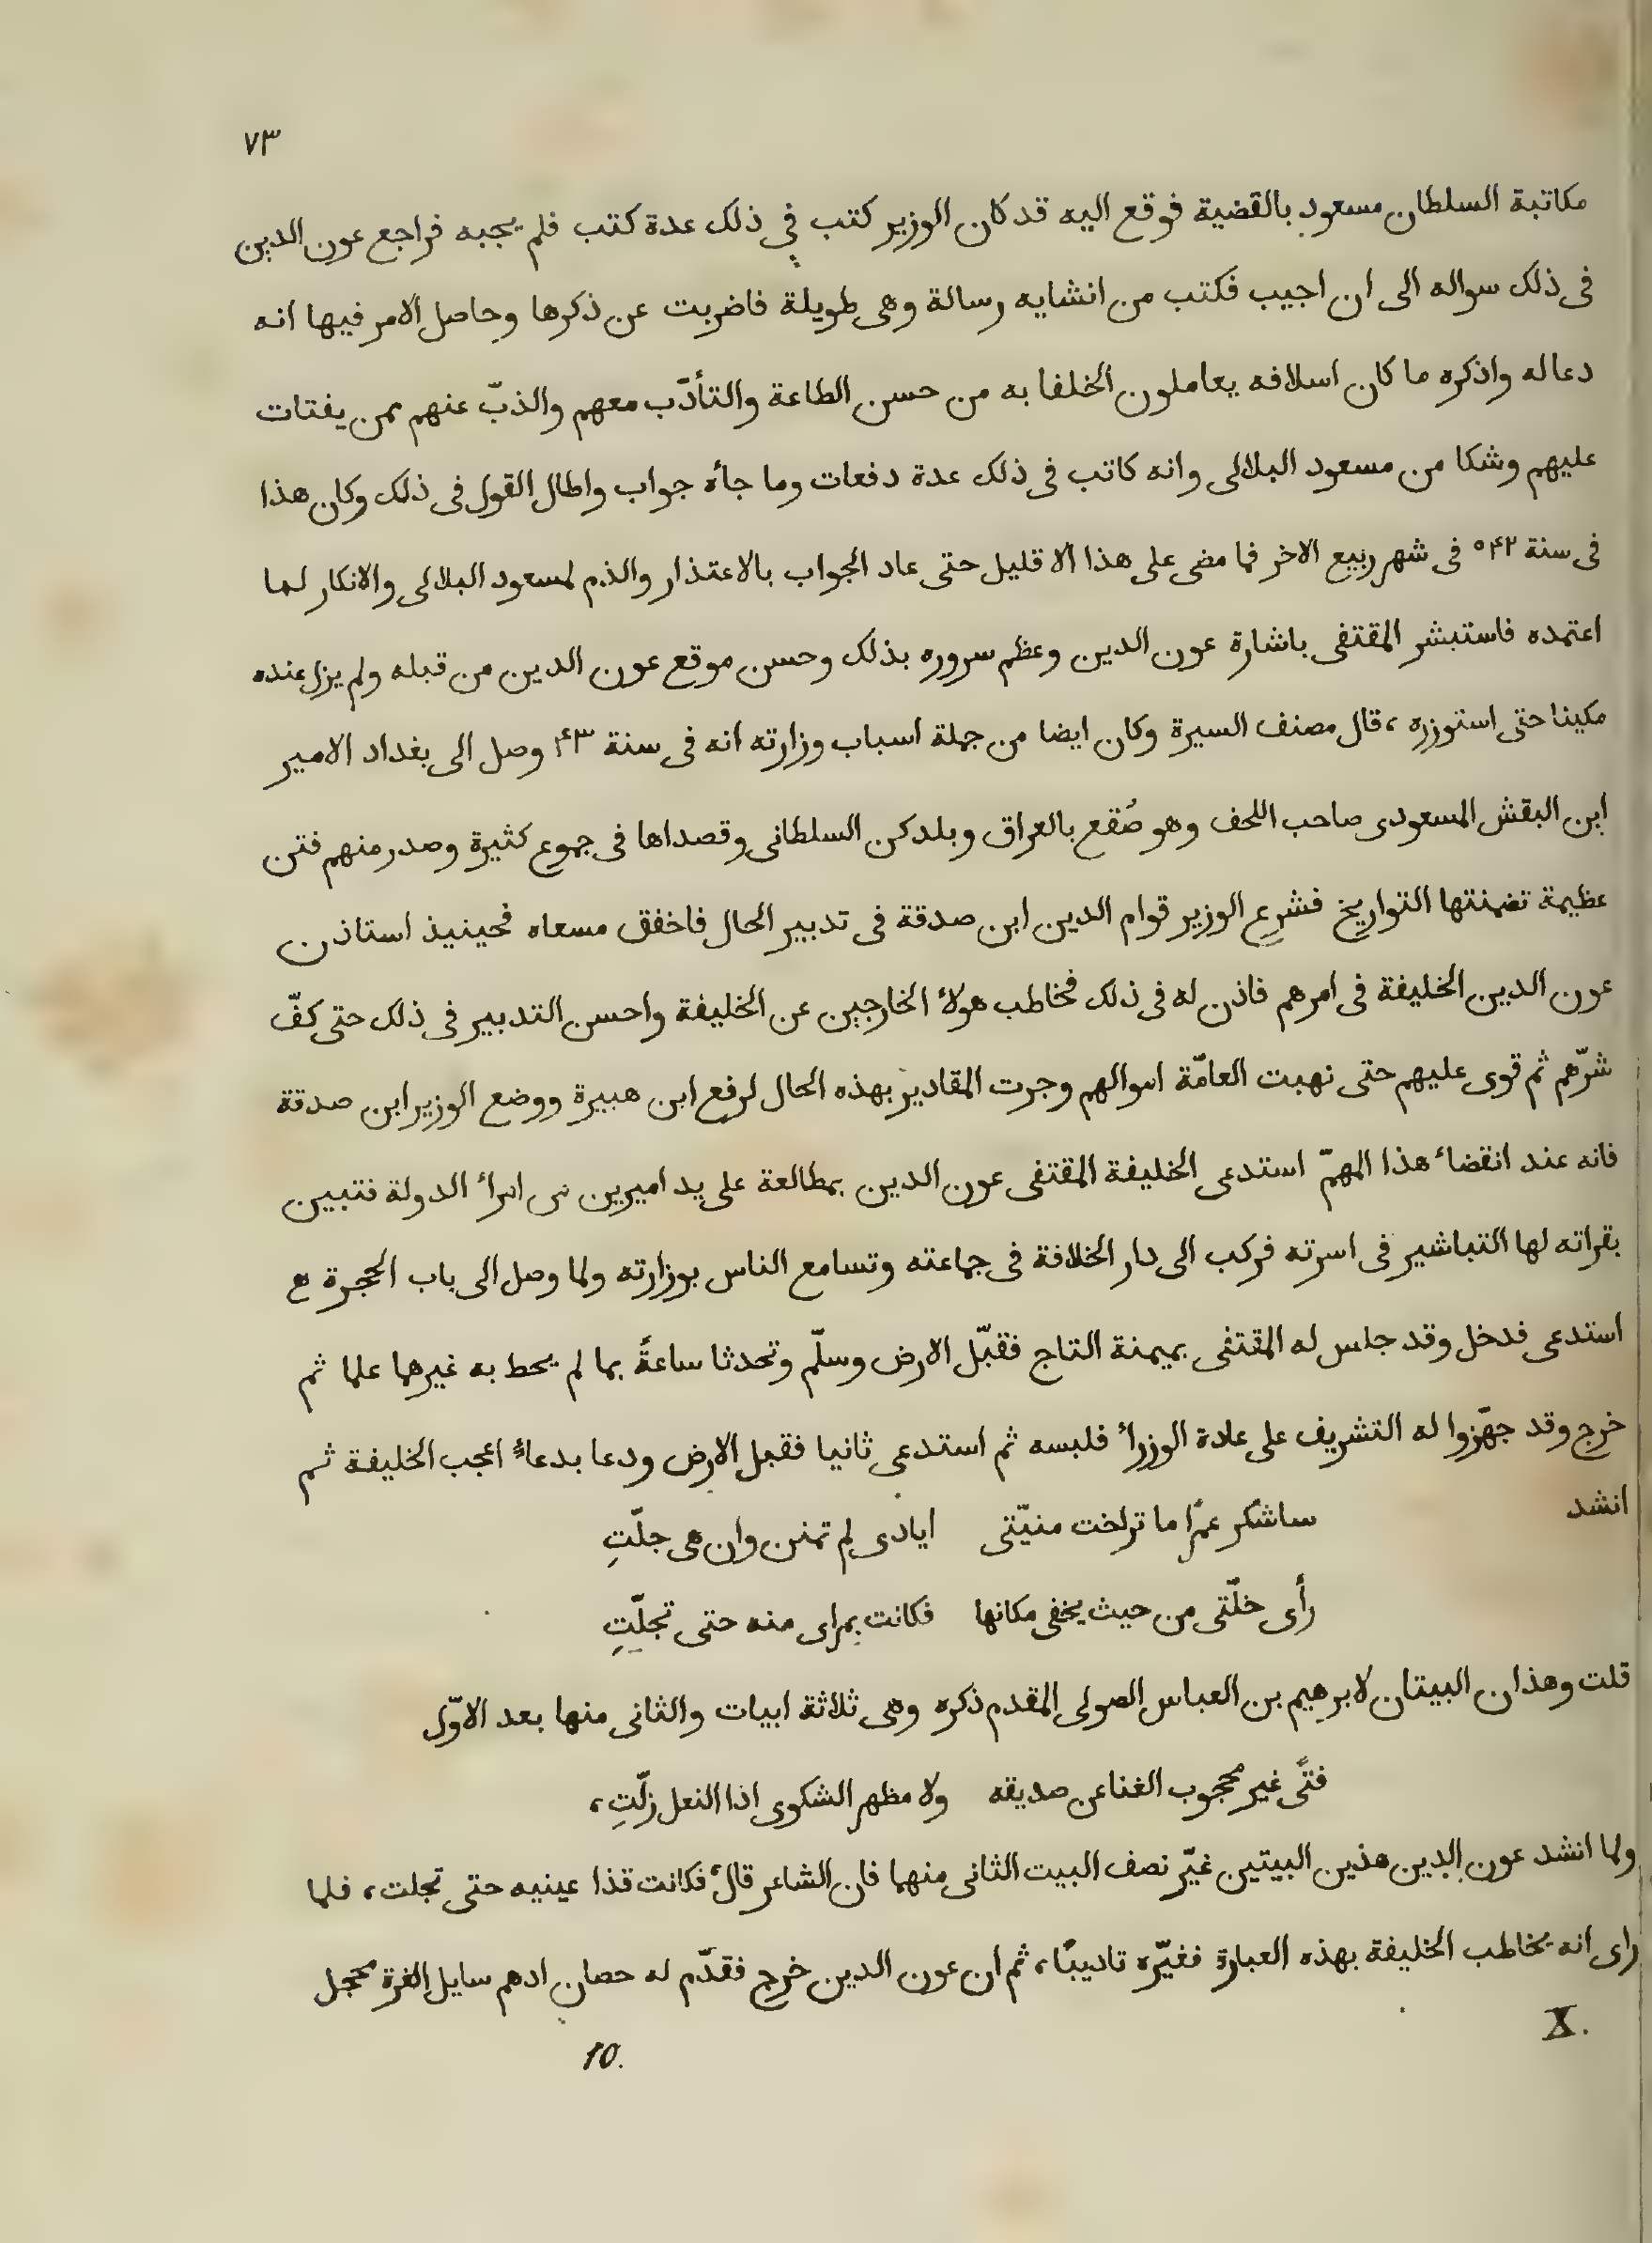 ٧٣
مكاتبة السلطان مسعود بالقضية فوقع اليه قد كان الوزير كتب في ذلك عدة كتب فلم يجبه فراجع عون الدين
فى ذلك سواله الى ان اجيب فكتب من انشايه رسالة وهى طويلة فاضربت عن ذكرها وحاصل الامر فيها انه
دعا له واذكره ما كان اسلافه يعاملون الخلفا به من حسن الطاعة والتأدّب معهم والذبّ عنهم ممن يفتات
عليهم وشكا من مسعود البلالى وانه كاتب فى ذلك عدة دفعات وما جأه جواب واطال القول فى ذلك وكان هذا
فى سنة ٥٤٢ فى شهر ربيع الاخر فما مضى على هذا الا قليل حتى عاد الجواب بالاعتذار والذم لمسعود البلالى والانكار لما
اعتمده فاستبشر المقتفى باشارة عون الدين وعظم سروره بذلك وحسن موقع عون الدين من قبله ولم يزل عنده
مكينا حتى استوزره، قال مصنف السيرة وكان ايضا من جملة اسباب وزارته انه فى سنة ٤٣ وصل الى بغداد الامير
ابن البقش المسعودى صاحب اللحف وهو صُقع بالعراق ويلدكن السلطانى وقصداها فى جموع كثيرة وصدر منهم فتن
عظيمة تضمنتها التواريخ فشرع الوزير قوام الدين ابن صدقة فى تدبير الحال فاخفق مسعاه فحينيذ استاذن
عون الدين الخليفة فى امرهم فاذن له فى ذلك فخاطب هولأ الخارجين عن الخليفة واحسن التدبير فى ذلك حتى كفّ
شرّهم ثم قوى عليهم حتى نهبت العامّة اموالهم وجرت المقادير بهذه الحال لرفع ابن هبيرة ووضع الوزير ابن صدقة
فانه عند انقضاء هذا المهمّ استدعى الخليفة المقتفى عون الدين بمطالعة على يد اميرين من امرأ الدولة فتبين
بقراته لها التباشير فى اسرته فركب الى دار الخلافة فى جماعته وتسامع الناس بوزارته ولما وصل الى باب الحجرة
استدعى فدخل وقد جلس له المقتفى بميمنة التاج فقبّل الارض وسلّم وتحدثا ساعةً بما لم يحط به غيرهما علما ثم
خرج وقد جهّزوا له التشريف على عادة الوزرأ فلبسه ثم استدعى ثانيا فقبل الارض ودعا بدعاءٍ اعجب الخليفة ثم
انشد ساشكر عمرًا ما تراخت منيّتى ايادى لم تمنن وان هى جلّتِ
رأى خلّتى من حيث يخفى مكانها فكانت بمراى منه حتى تجلّتِ
قلت وهذان البيتان لابرهيم بن العباس الصولى المقدم ذكره وهى ثلاثة ابيات والثانى منها بعد الاوّل
فتًى غير محجوب الغنا عن صديقه ولا مظهر الشكوى اذا النعل زلّتِ،
ولما انشد عون الدين هذين البيتين غيّر نصف البيت الثانى منهما فان الشاعر قال فكانت قذا عينيه حتى تجلت، فلما
راى انه يخاطب الخليفة بهذه العبارة فغيّره تاديبًا، ثم ان عون الدين خرج فقدّم له حصان ادهم سايل الغرة محجل
X.
10.